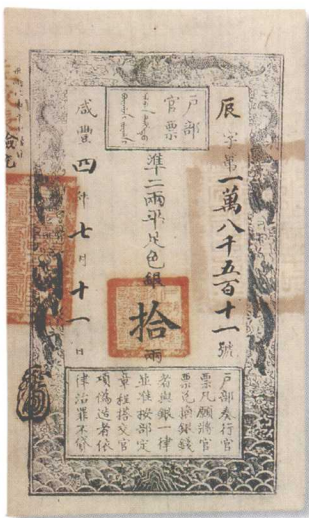 户部
官票
辰字第一萬八千五百十一號
準二兩平足色銀
拾
兩
咸豐四年七月十一日
户部奏行官
票凡願將官
票兌換銀錢
者與銀一律
並准按部定
章程搭交官
項偽造者依
律治罪不貸